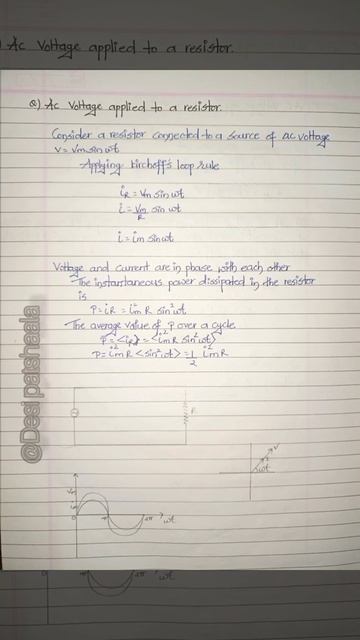 Ac Voltage applied to a resistor.
Q) Ac Voltage applied to a resistor.
Consider a resistor connected to a source of ac voltage
v = vm sin wt
Applying kirchoff's loop rule
iR = vm sin wt
i = vm/R sin wt
i = im sin wt
Voltage and current are in phase with each other
The instantaneous power dissipated in the resistor
is
P = i²R = im² R sin² wt
The average value of P over a cycle
P = <i²R> = <im² R sin² wt>
P = im² R <sin² wt> = 1/2 im² R
@Desi patshaala
R
v
wt
vm
im
0
π
2π
wt
0
π
2π
wt